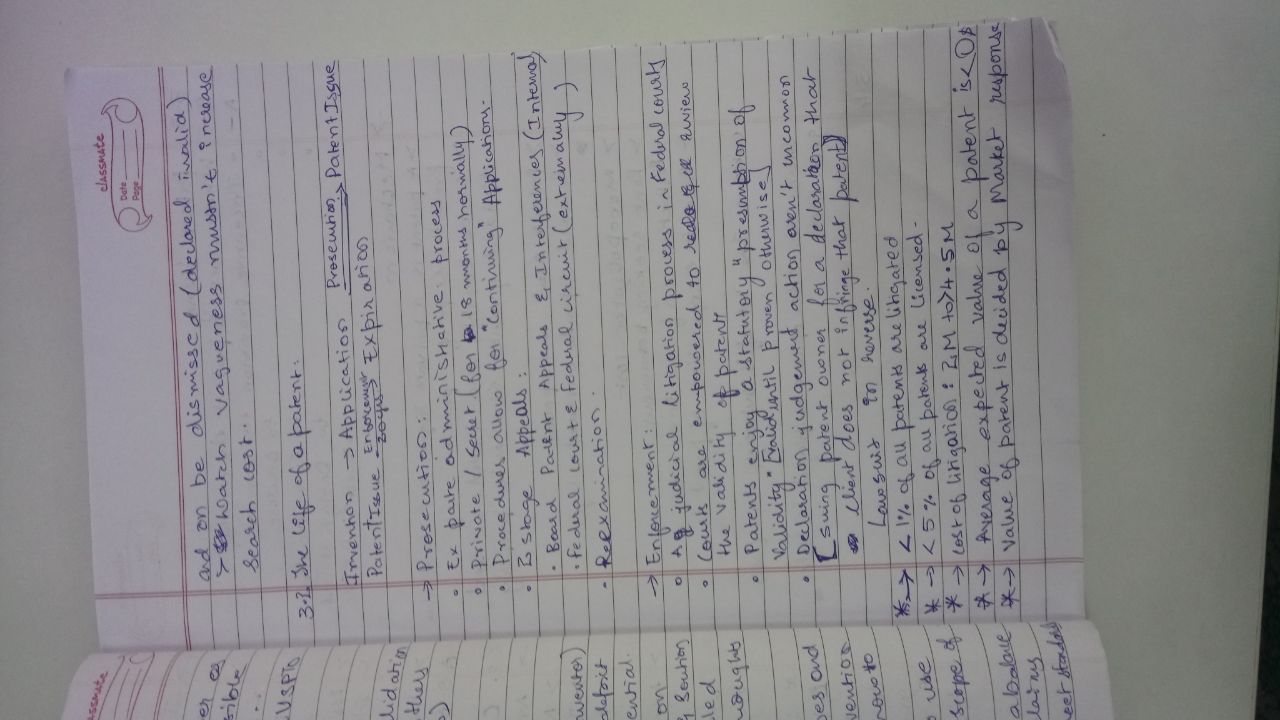 classmate
Date
Page
and on be dismisse (declared invalid)
→ Search vagueness mustn't increase
Search cost.
3.2 The Life of a patent:
Invention → Application Prosecution → Patent Issue
Patent Issue Enforcement Expiration
→ Prosecution:
• Ex parte administrative process
• Private / secret (for 18 months normally)
• Procedures allow for "continuing" Applications.
• 2 stage Appeals:
• Board Patent Appeals & Interferences (Internal)
• Federal court & Federal circuit (externally)
• Reexamination.
→ Enforcement:
• A judicial litigation process in Federal courts
• Courts are empowered to review
the validity of patent
• Patents enjoy a statutory "presumption of
Validity" [valid until proven otherwise]
• Declaration judgement action aren't incommon
[Suing patent owner for a declaration that
client does not infringe that patent]
Lawsuit in reverse.
*→ < 1% of all patents are litigated
*→ < 5% of all patents are licensed.
*→ cost of litigation: 2M to >4.5M
*→ Average expected value of a patent is < 0$
*→ Value of Patent is decided by Market response
classmate
er as
sible
USPTO
lidation
they
ventor)
deposit
ential.
on
g Solution
led
noughts
pes and
vention
now to
o use
scope of
a balance
laims